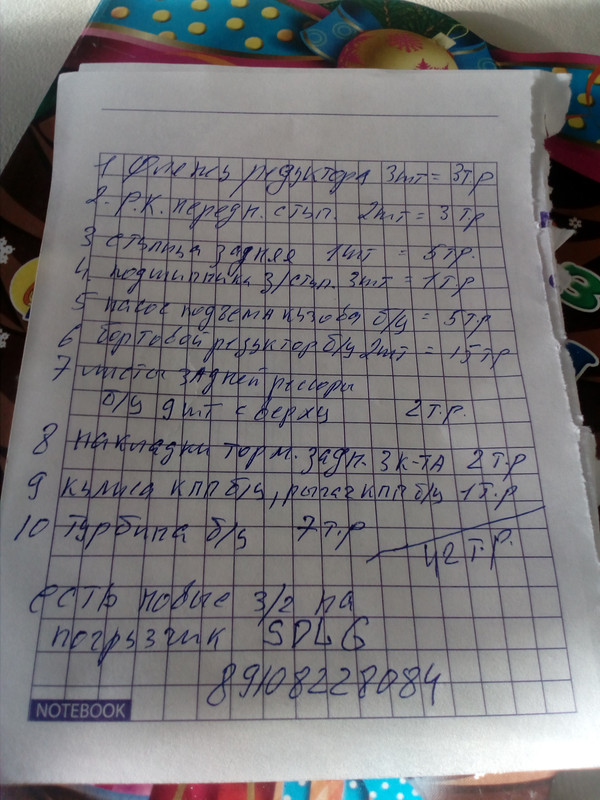 1 Фланец редуктора 3шт = 3тр
2. Р.К. передн. ступ. 2шт = 3тр
3 ступица задняя 1шт = 5тр.
4. подшипника з/ступ. 3шт = 1т.р
5 насос подъема кузова б/у = 5тр
6 бортовой редуктор б/у 2шт = 15тр
7 листы задней рессоры
б/у 9шт сверху 2т.р.
8 накладки торм. задн. 3 к-та 2т.р
9 кулиса КПП б/у, рычаг КПП б/у 1т.р
10 Турбина б/у 7т.р
42т.р.
есть новые з/ч на
погрузчик SDLG
89108228084
NOTEBOOK